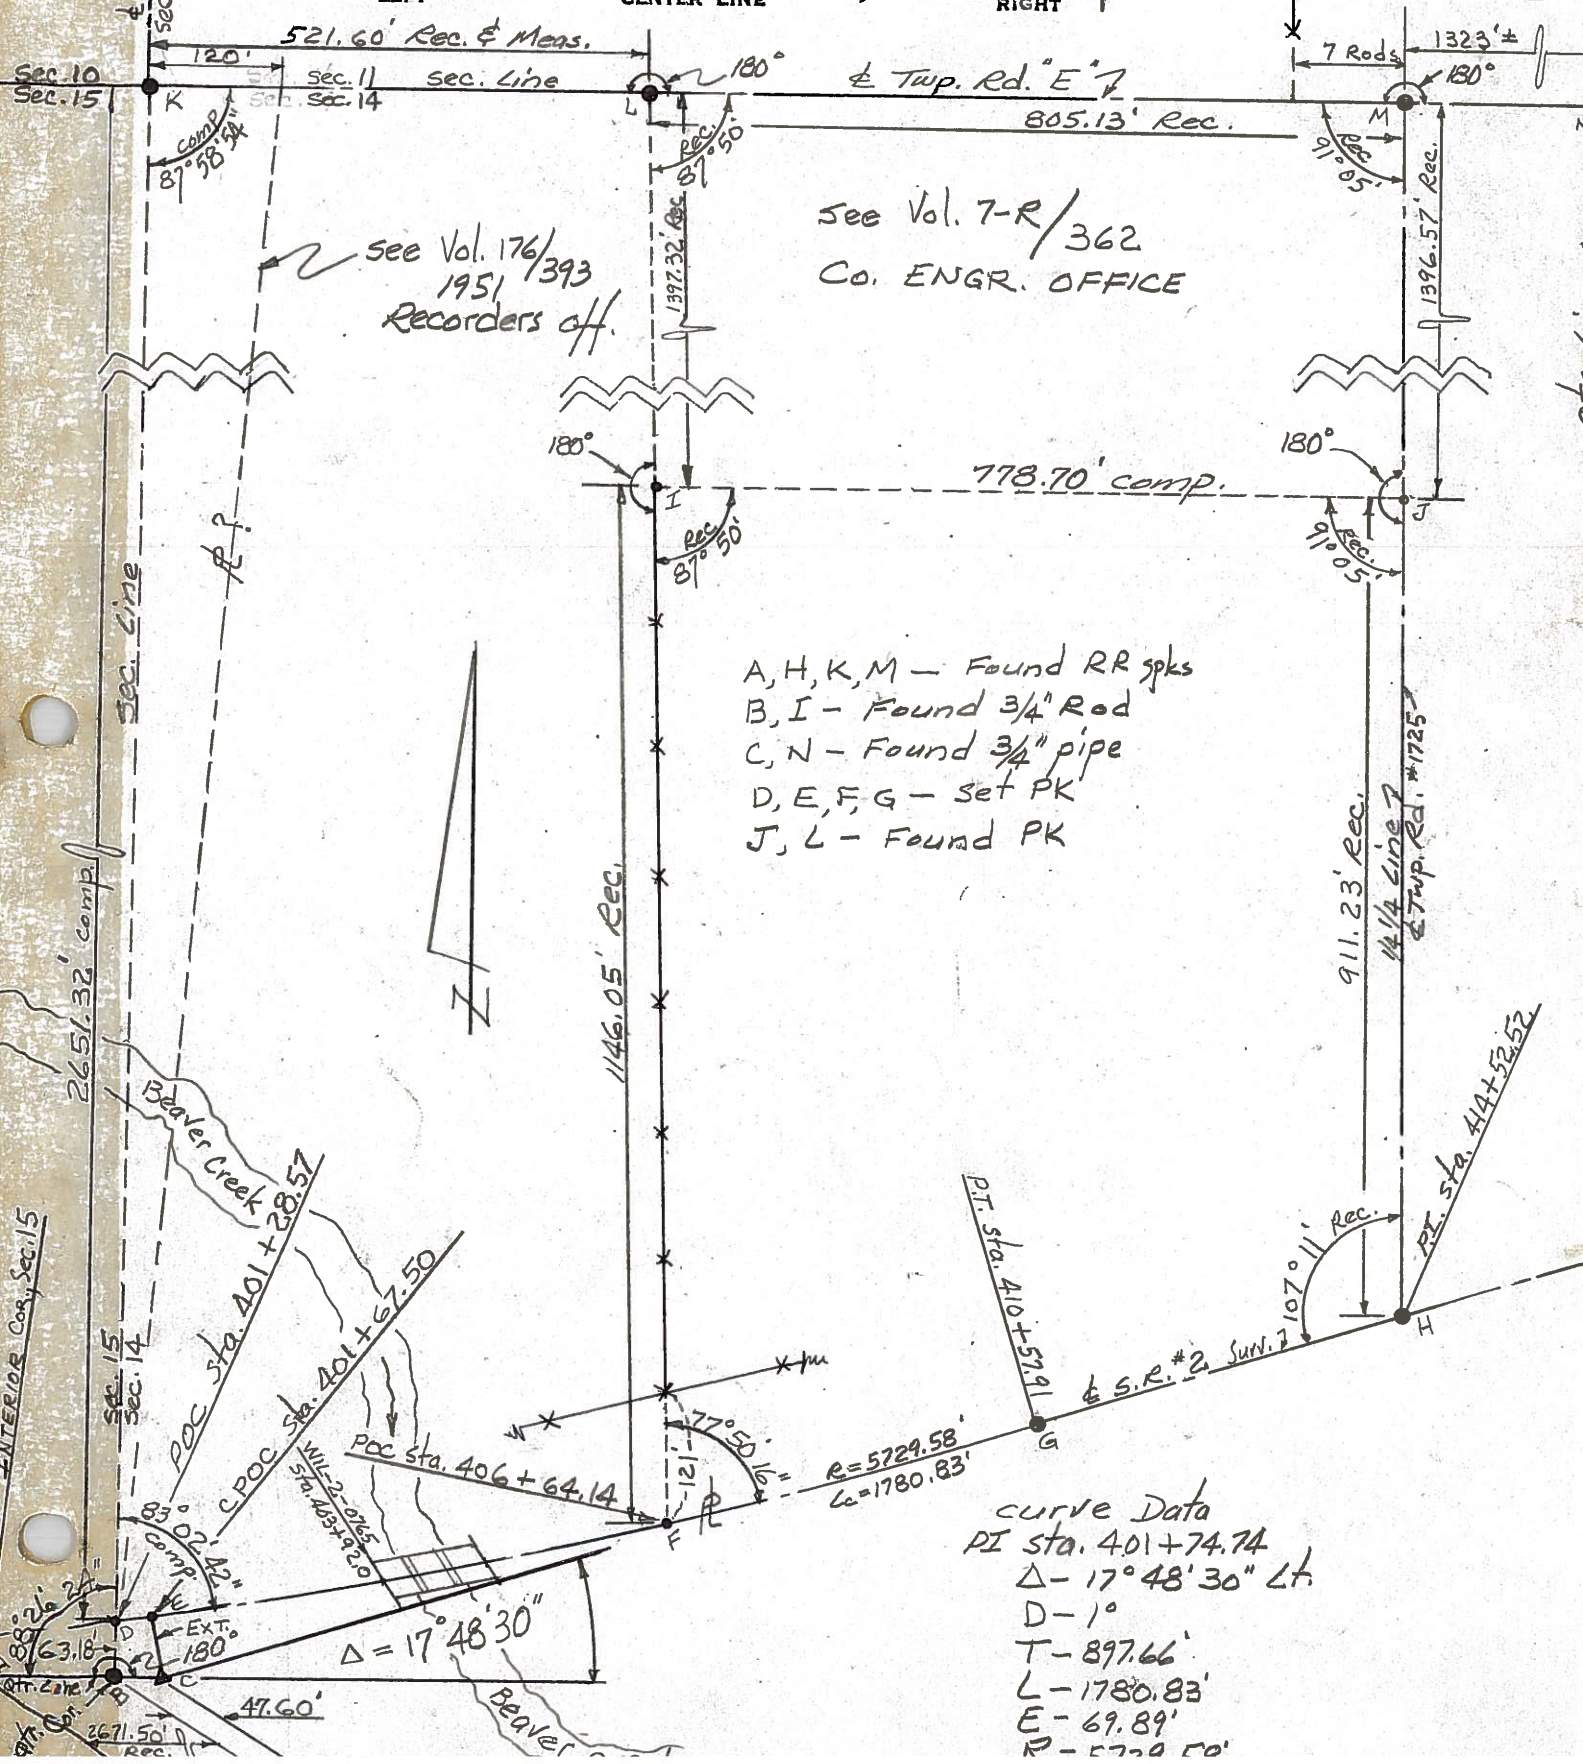 CENTER LINE
RIGHT
521.60' Rec. & Meas.
120'
180°
℄ Twp. Rd. "E"
7 Rods
1323'±
180°
Sec. 10
Sec. 15
Sec. 11 Sec. Line
Sec. 14
K
L
M
805.13' Rec.
comp
87°58'54"
Rec.
87°50'
Rec
91°05'
1397.32' Rec
1396.57' Rec.
see Vol. 176/393
1951
Recorders off.
see Vol. 7-R/362
Co. ENGR. OFFICE
180°
180°
778.70' comp.
I
J
Rec
87°50'
Rec.
91°05'
℄ ?
Sec. Line
A, H, K, M — Found RR spks
B, I — Found 3/4" Rod
C, N — Found 3/4" pipe
D, E, F, G — Set PK
J, L — Found PK
N
2651.32' comp.
1146.05' Rec.
911.23' Rec.
1/4 1/4 Line
℄ Twp. Rd. #1725
Beaver Creek
INTERIOR COR., Sec. 15
Sec. 15
Sec. 14
POC sta. 401+28.57
CPOC sta. 401+67.50
POC sta. 406+64.14
WIL-2-0765
sta. 403+92.0
P.T. sta. 410+57.91
P.I. sta. 414+52.52
107°11' Rec.
H
℄ S.R. #2 Surv.
G
77°50'16"
121'
R=5729.58'
Lc=1780.83'
F
83°02'42"
comp.
88°26'
D
E
EXT.
180°
63.18'
Qtr. Line
B
C
Δ = 17°48'30"
47.60'
2671.50'
Rec.
Beaver
Curve Data
PI sta. 401+74.74
Δ - 17°48'30" Lt.
D - 1°
T - 897.66'
L - 1780.83'
E - 69.89'
R - 5729.58'